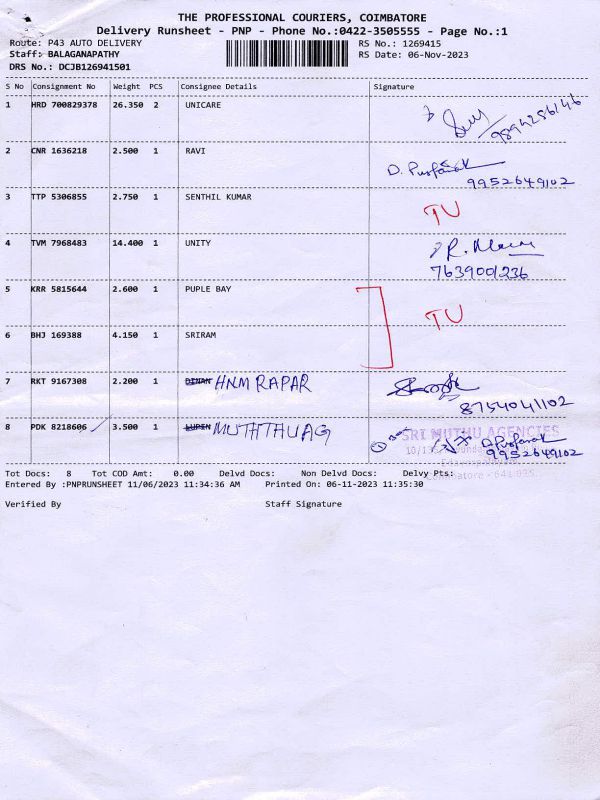 THE PROFESSIONAL COURIERS, COIMBATORE
Delivery Runsheet - PNP - Phone No.:0422-3505555 - Page No.:1
Route: P43 AUTO DELIVERY RS No.: 1269415
Staff: BALAGANAPATHY RS Date: 06-Nov-2023
DRS No.: DCJB126941501
S No Consignment No Weight PCS Consignee Details Signature
1 HRD 700829378 26.350 2 UNICARE
9894256146
2 CNR 1636218 2.500 1 RAVI
9952649102
3 TTP 5306855 2.750 1 SENTHIL KUMAR TU
4 TVM 7968483 14.400 1 UNITY
7639001236
5 KRR 5815644 2.600 1 PUPLE BAY
TU
6 BHJ 169388 4.150 1 SRIRAM
7 RKT 9167308 2.200 1 DINAN HNM RAPAR
8754041102
8 PDK 8218606 3.500 1 LUPIN MUTHTHUAG
SRI MUTHU AGENCIES
9952649102
Tot Docs: 8 Tot COD Amt: 0.00 Delvd Docs: Non Delvd Docs: Delvy Pts:
Entered By :PNPRUNSHEET 11/06/2023 11:34:36 AM Printed On: 06-11-2023 11:35:30
Verified By Staff Signature